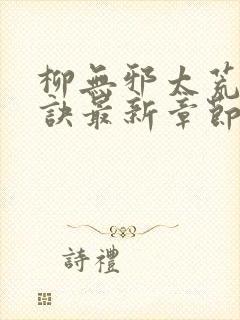 柳無邪太荒
訣最新章節
詩禮